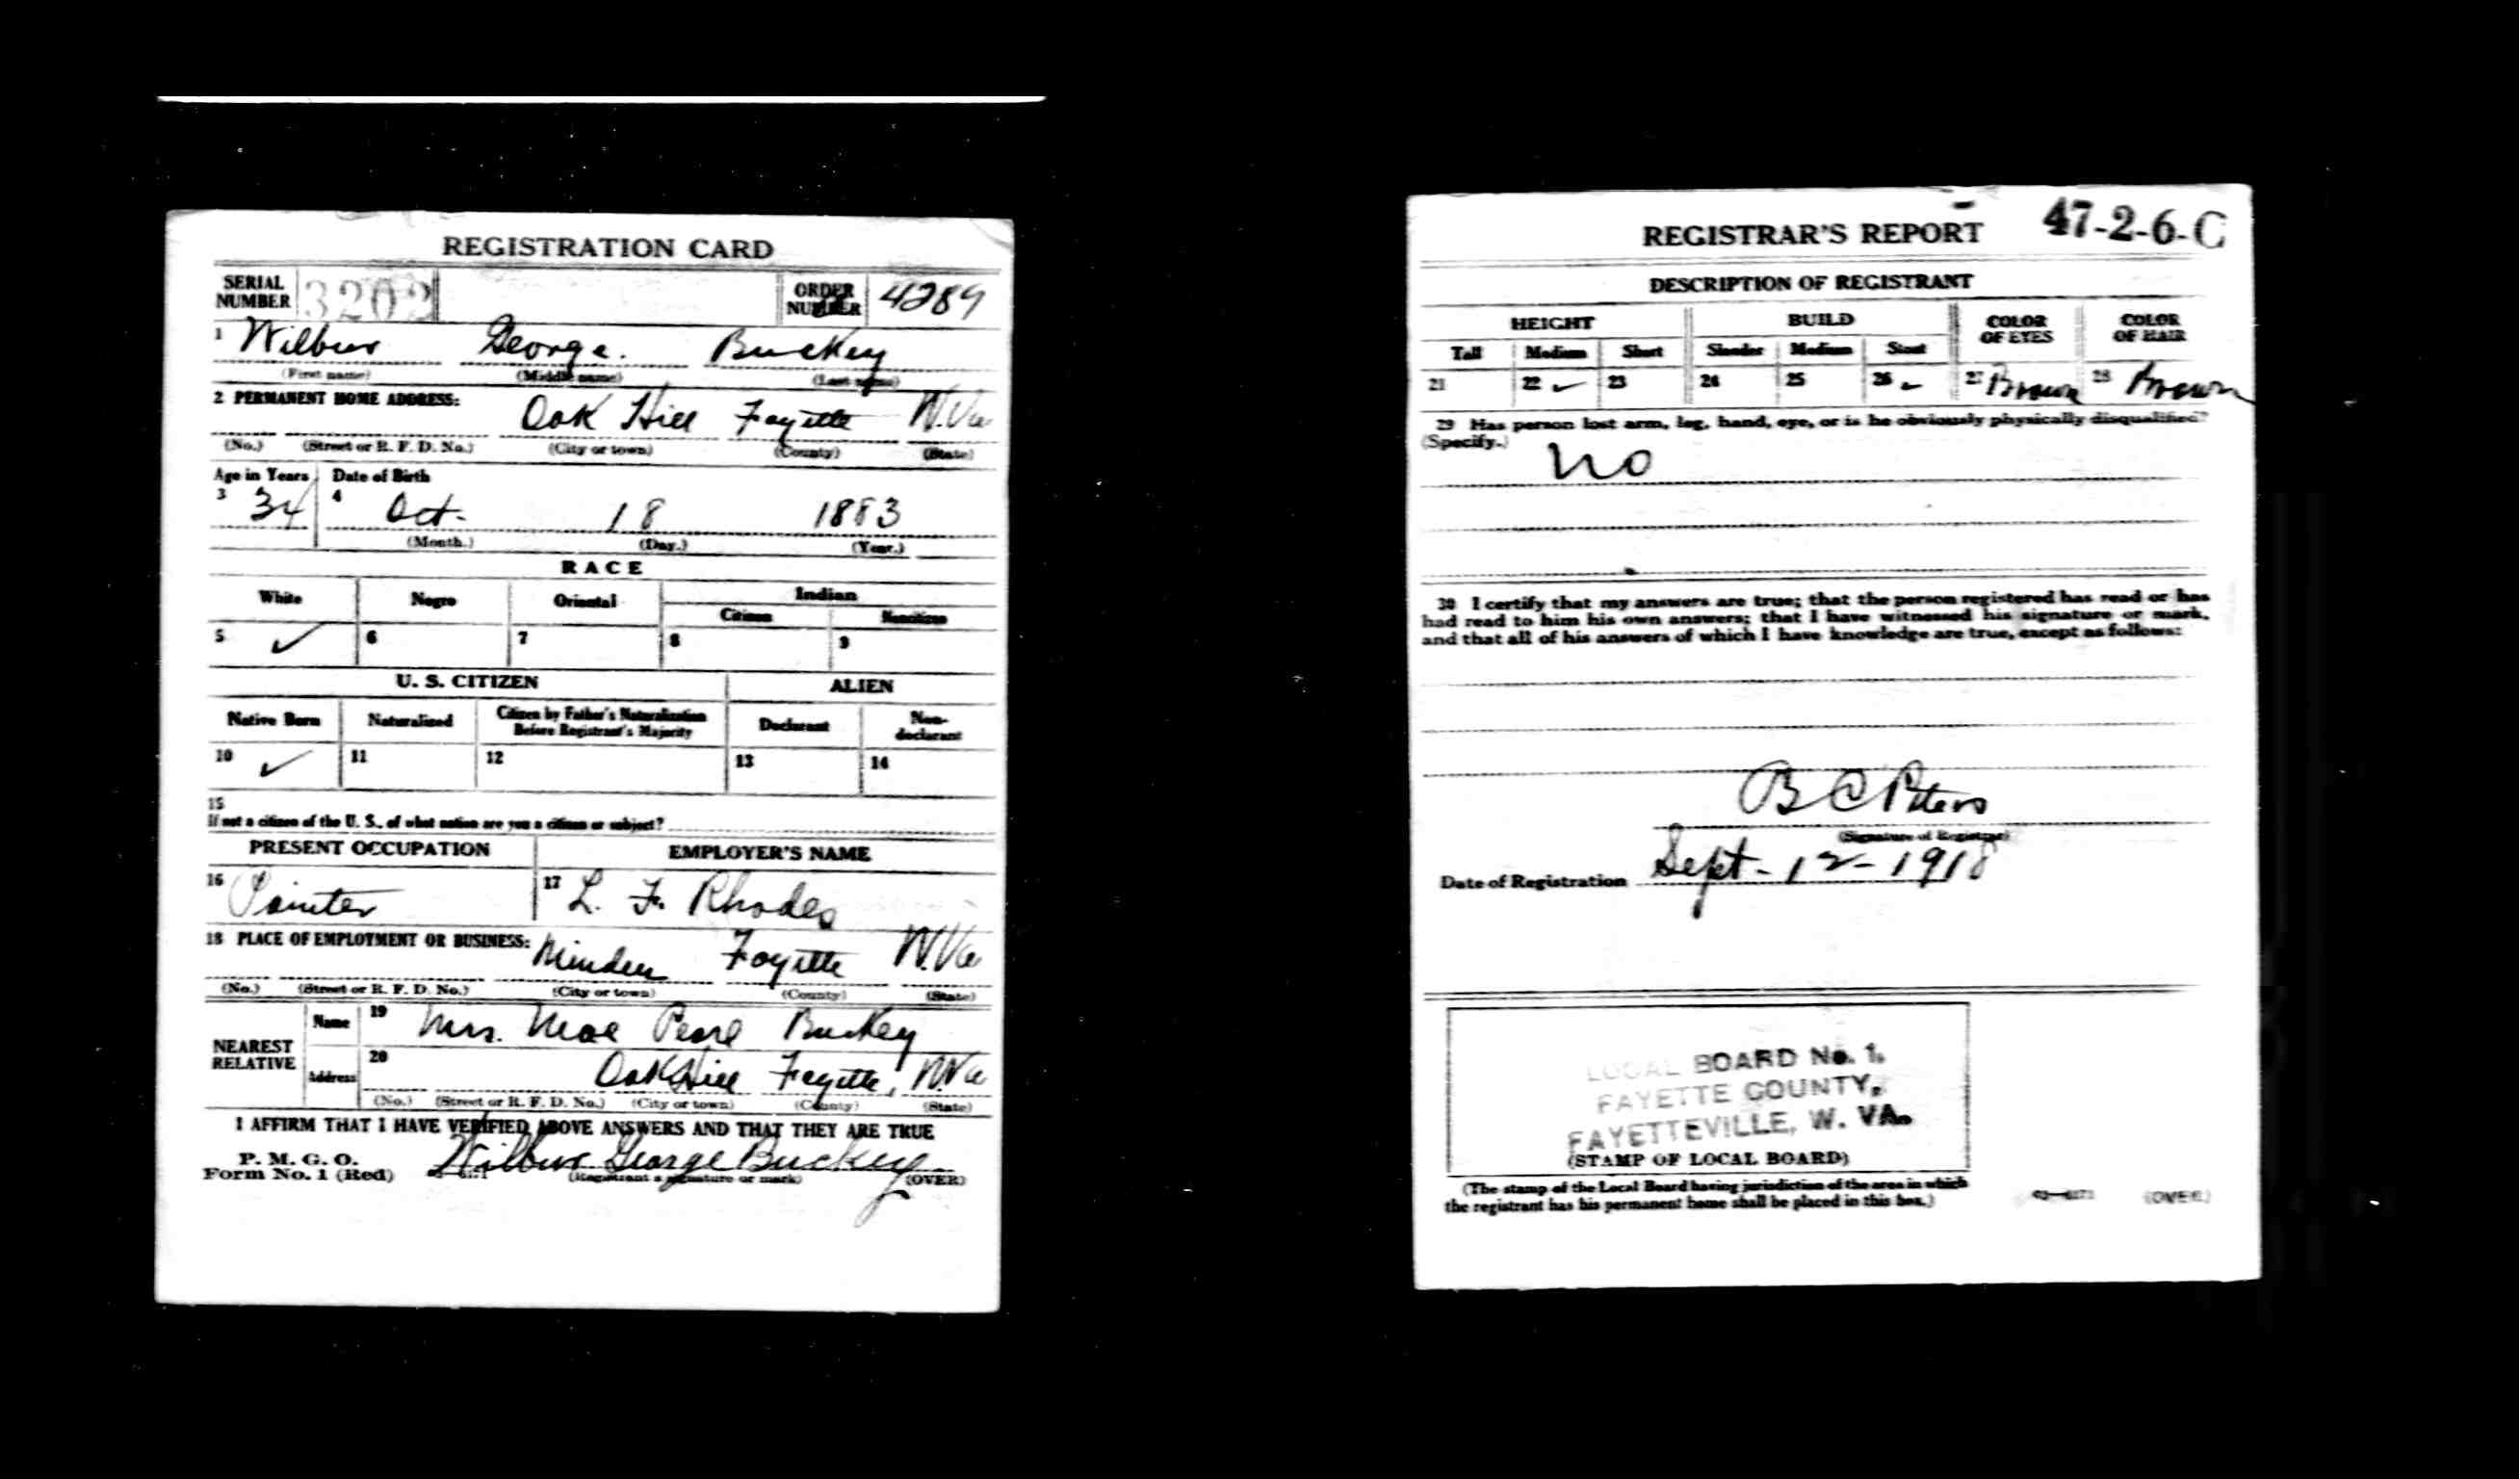 REGISTRATION CARD
SERIAL NUMBER 3202 ORDER NUMBER 4289
1 Wilbur George. Buckey
(First name) (Middle name) (Last name)
2 PERMANENT HOME ADDRESS: Oak Hill Fayette W.Va
(No.) (Street or R. F. D. No.) (City or town) (County) (State)
Age in Years Date of Birth
3 34 4 Oct. 18 1883
(Month.) (Day.) (Year.)
RACE
White Negro Oriental Indian
Citizen Noncitizen
5 ✓ 6 7 8 9
U. S. CITIZEN ALIEN
Native Born Naturalized Citizen by Father's Naturalization Before Registrant's Majority Declarant Non-declarant
10 ✓ 11 12 13 14
15
If not a citizen of the U. S., of what nation are you a citizen or subject?
PRESENT OCCUPATION EMPLOYER'S NAME
16 Painter 17 L. F. Rhodes
18 PLACE OF EMPLOYMENT OR BUSINESS: Minden Fayette W.Va
(No.) (Street or R. F. D. No.) (City or town) (County) (State)
NEAREST RELATIVE
Name 19 Mrs. Mae Pearl Buckey
Address 20 Oak Hill Fayette, W.Va
(No.) (Street or R. F. D. No.) (City or town) (County) (State)
I AFFIRM THAT I HAVE VERIFIED ABOVE ANSWERS AND THAT THEY ARE TRUE
P. M. G. O.
Form No. 1 (Red) Wilbur George Buckey
(Registrant's signature or mark) (OVER)
REGISTRAR'S REPORT 47-2-6-C
DESCRIPTION OF REGISTRANT
HEIGHT BUILD COLOR OF EYES COLOR OF HAIR
Tall Medium Short Slender Medium Stout
21 22 ✓ 23 24 25 26 ✓ 27 Brown 28 Brown
29 Has person lost arm, leg, hand, eye, or is he obviously physically disqualified?
(Specify.) no
30 I certify that my answers are true; that the person registered has read or has
had read to him his own answers; that I have witnessed his signature or mark,
and that all of his answers of which I have knowledge are true, except as follows:
B C Peters
(Signature of Registrar)
Date of Registration Sept-12-1918
LOCAL BOARD No. 1.
FAYETTE COUNTY,
FAYETTEVILLE, W. VA.
(STAMP OF LOCAL BOARD)
(The stamp of the Local Board having jurisdiction of the area in which
the registrant has his permanent home shall be placed in this box.)
(OVER)